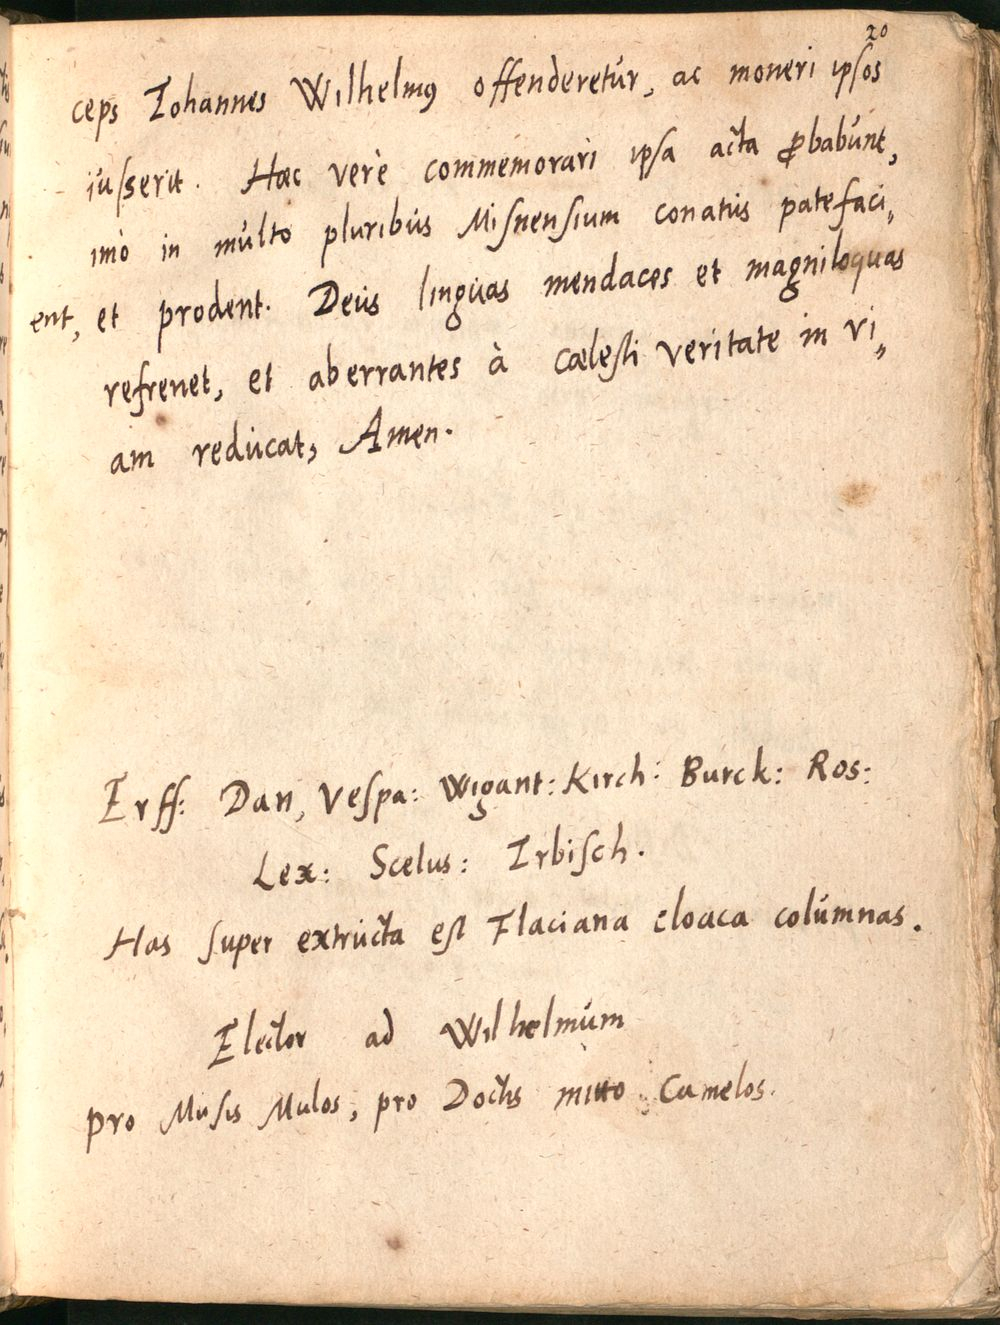 20
ceps Iohannes Wilhelmꝰ offenderetúr, ac moneri ipſos
iúſserit. Haec verè commemorari ipsa acta ꝓbabúnt,
imò in múlto pluribús Miſnenſium conatús patefaci„
ent, et prodent. Deús lingúas mendaces et magniloquas
refrenet, et aberrantes à cæleſti veritate in vi„
am redúcat, Amen.
Erff: Dan, Veſpa: Wigant: Kirch: Burck: Ros:
Lex: Scelus: Irbiſch.
Has ſuper extrúcta eſt Flaciana cloaca colúmnas.
Elector ad Wilhelmúm
Pro Muſis Mulos, pro Doctis mitto Camelos.